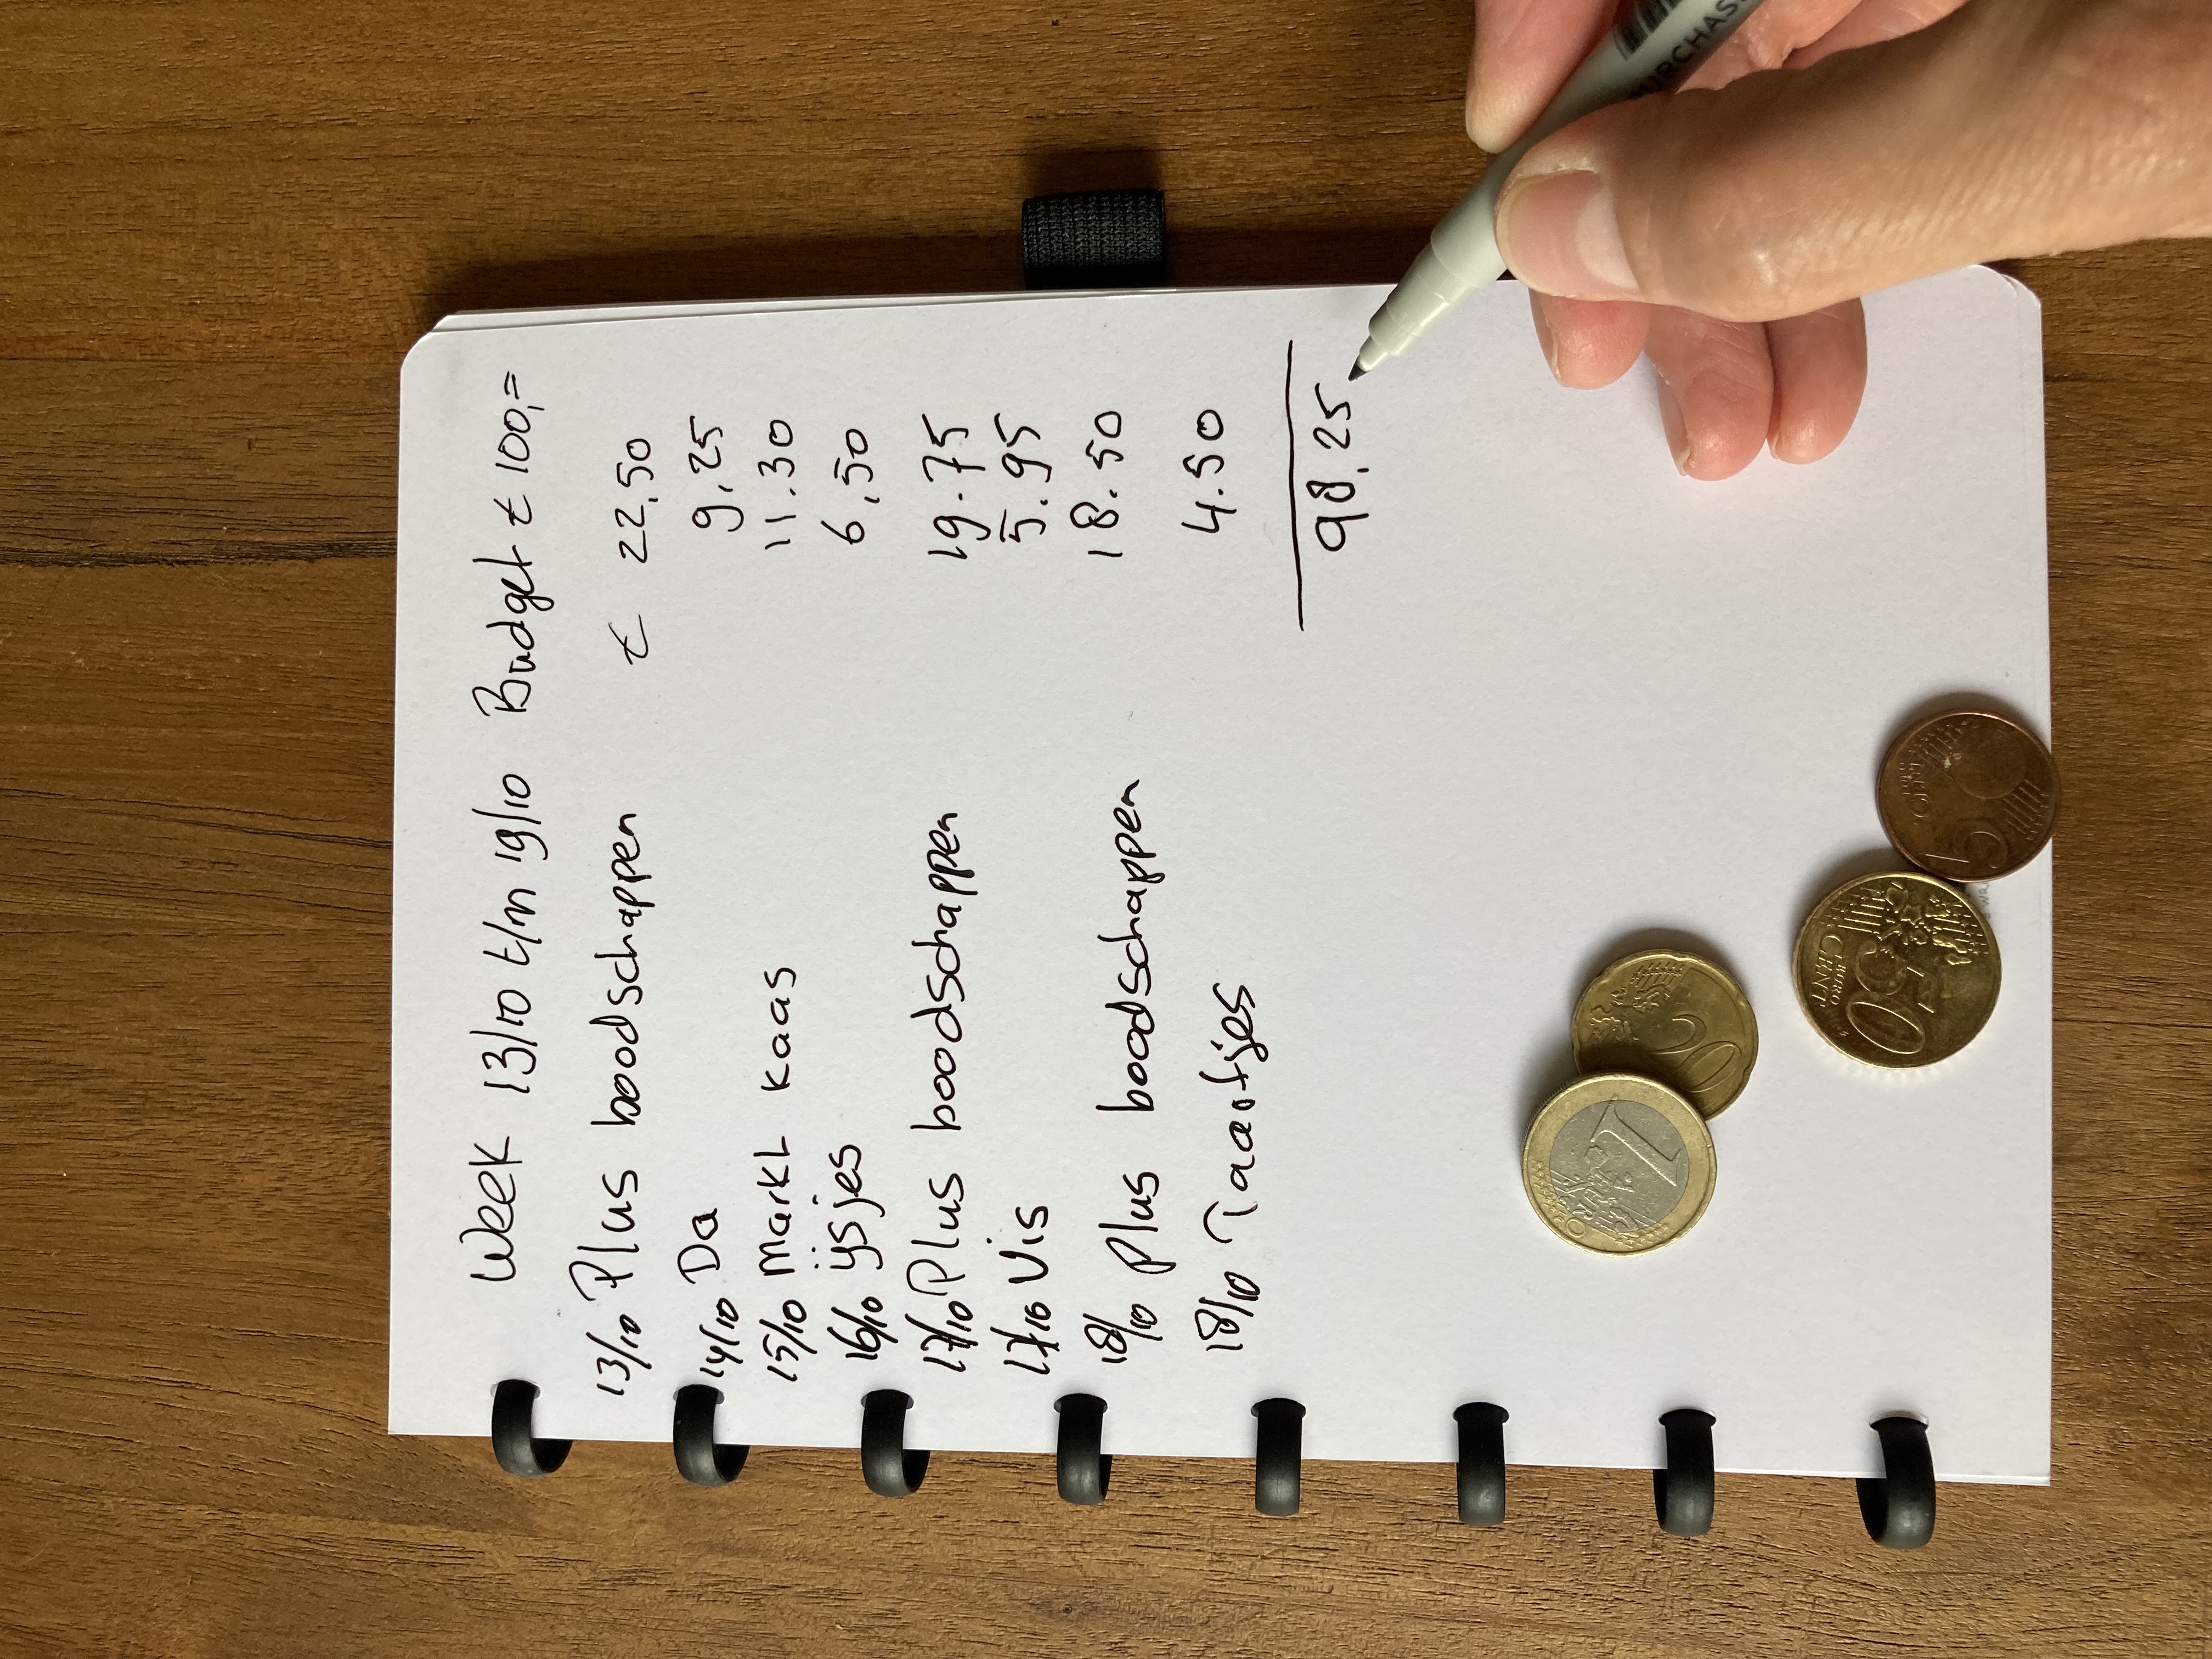 Week 13/10 t/m 19/10 Budget € 100,=
13/10 Plus boodschappen € 22,50
14/10 Da 9,25
15/10 Markt kaas 11.30
16/10 ijsjes 6,50
17/10 Plus boodschappen 19.75
17/10 Vis 5.95
18/10 Plus boodschappen 18.50
18/10 Taartjes 4.50
98,25
1
EURO
20
50
EURO
CENT
5
EURO
CENT